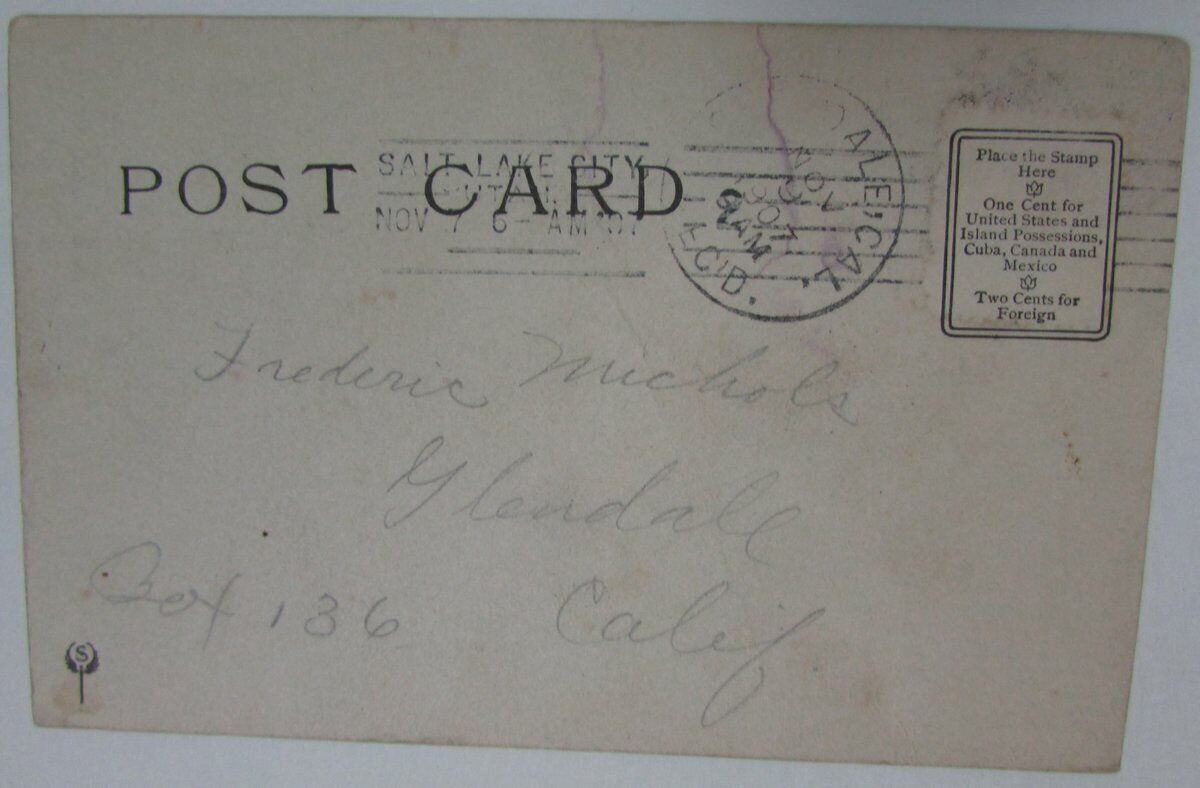 POST CARD
SALT LAKE CITY,
UTAH
NOV 7 6- AM 07
DALE, CAL.
NOV
1907
AM
REC'D.
Place the Stamp
Here
One Cent for
United States and
Island Possessions,
Cuba, Canada and
Mexico
Two Cents for
Foreign
Frederic Nichols
Glendale
Box 136 Calif.
S